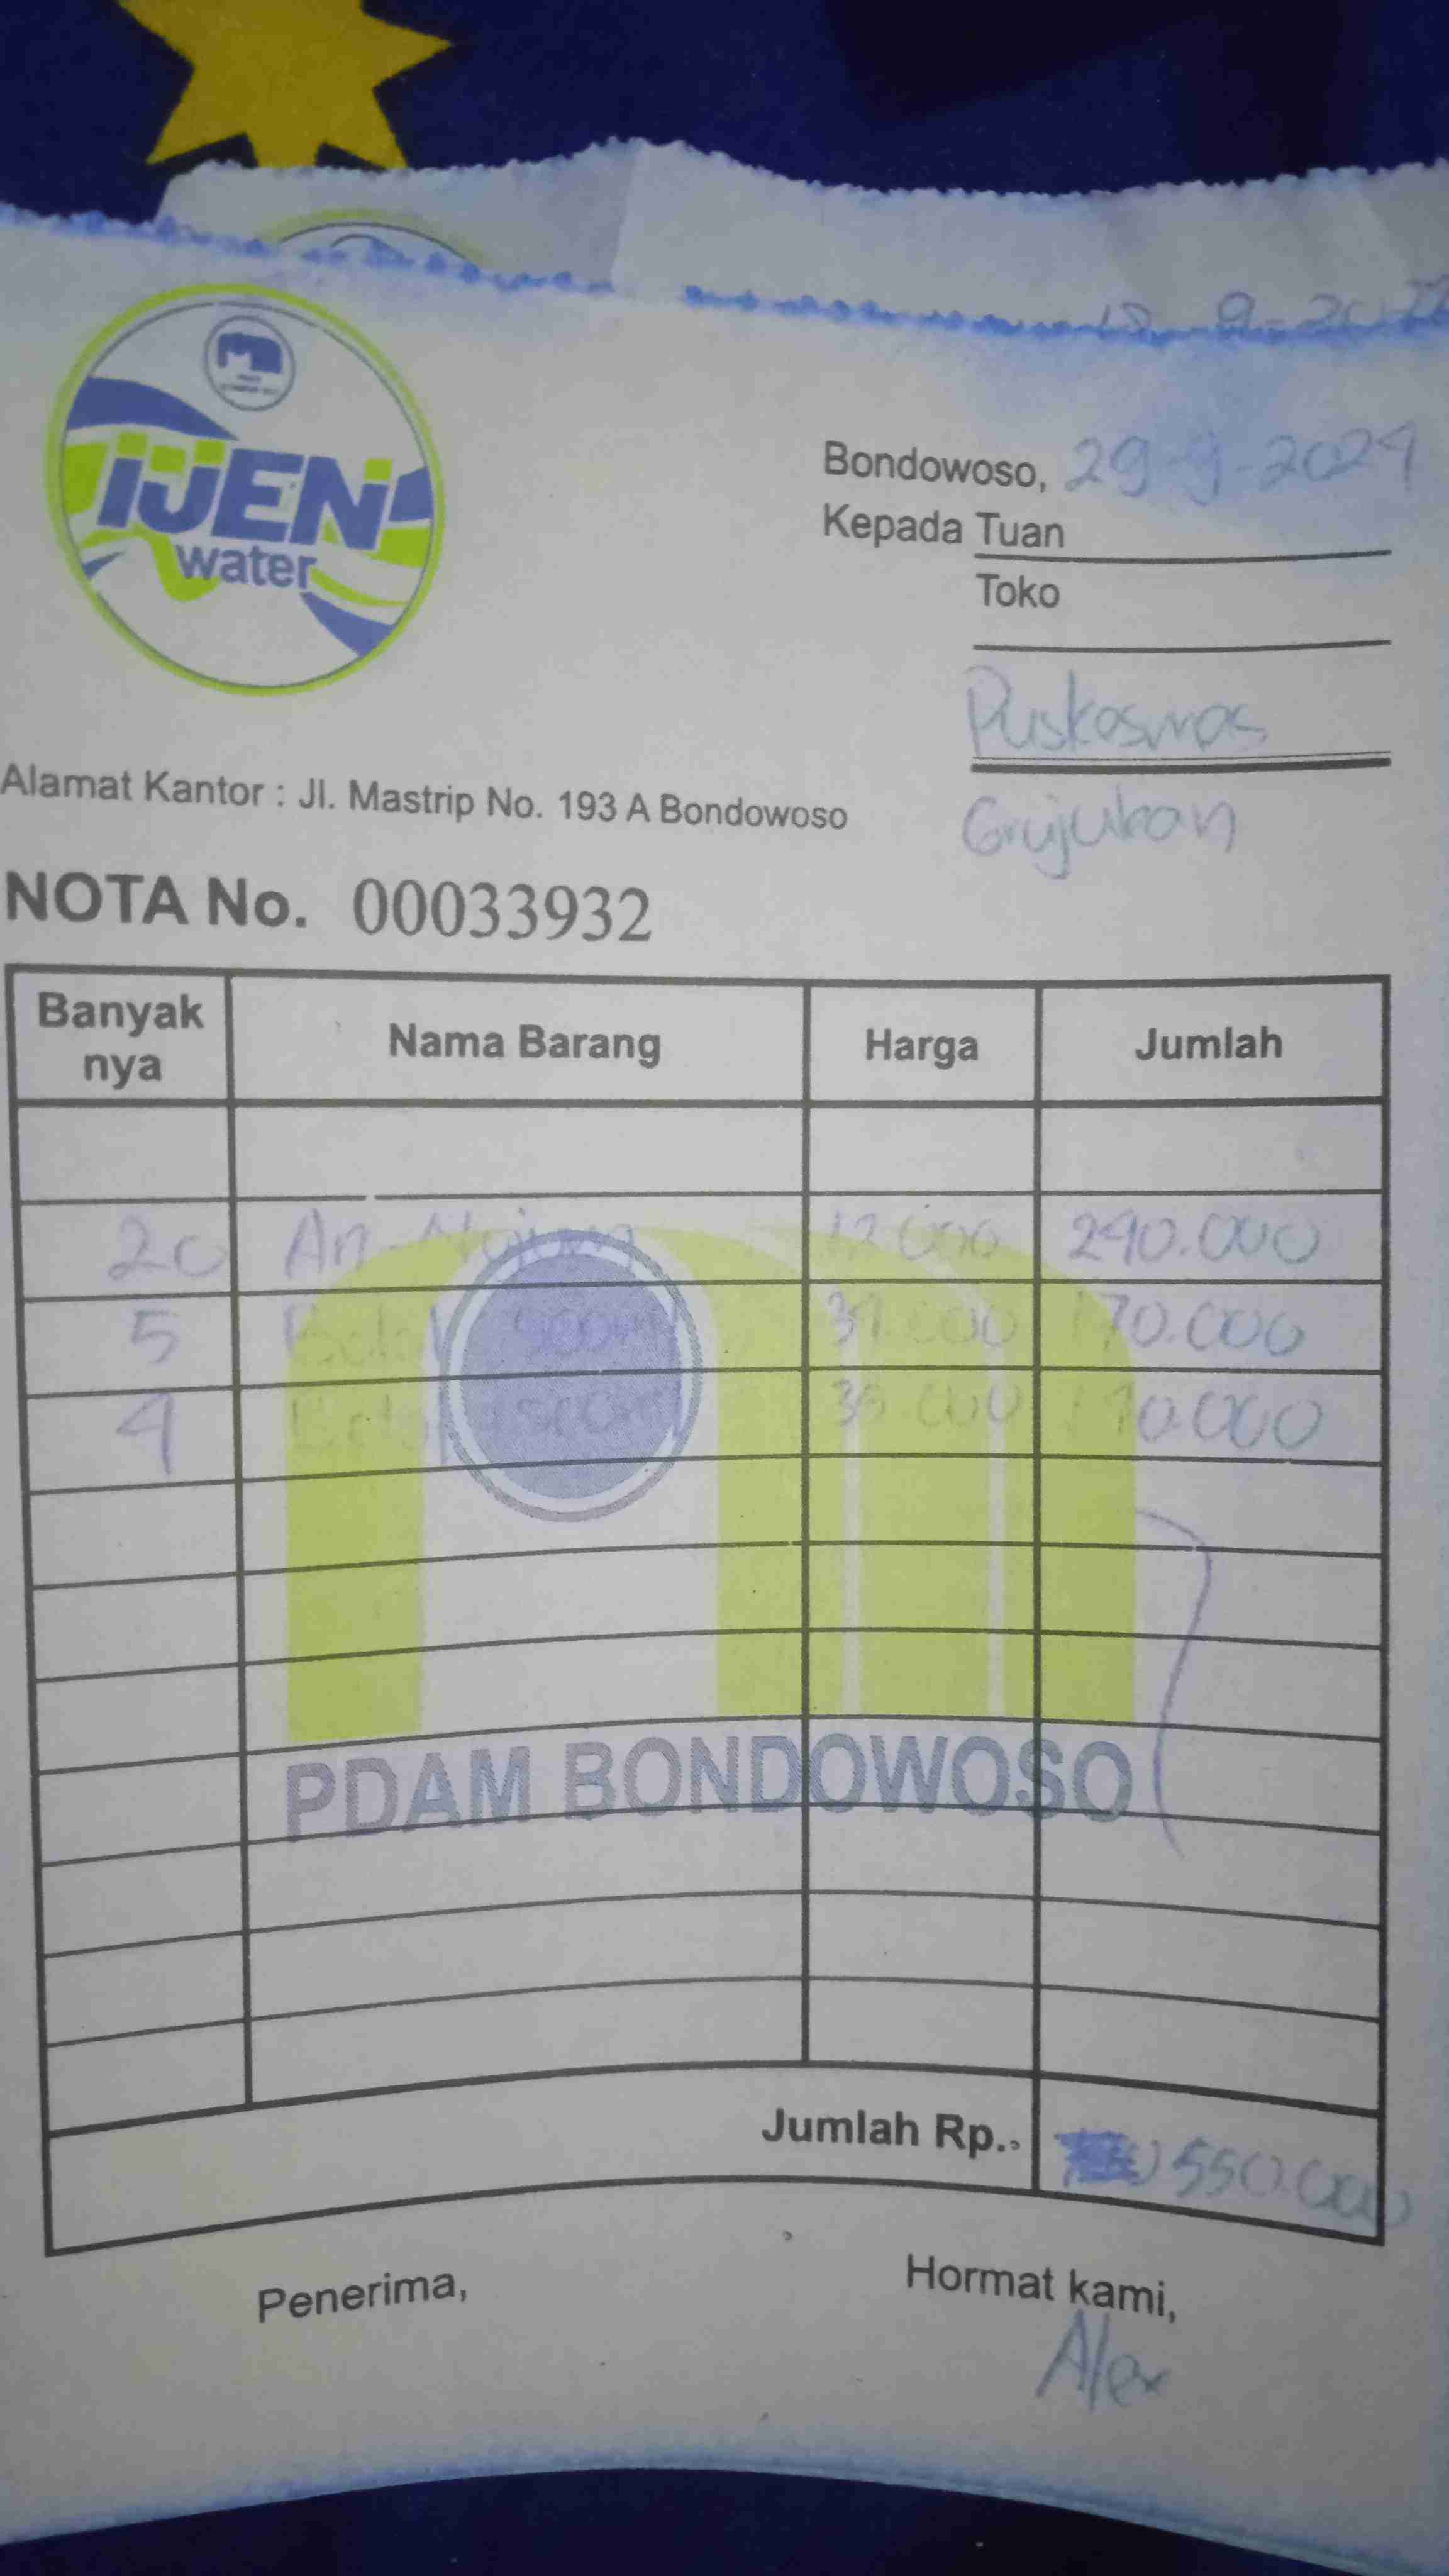 IJEN
water
Bondowoso, 29-9-2024
Kepada Tuan
Toko
Puskesmas
Grujukan
Alamat Kantor : Jl. Mastrip No. 193 A Bondowoso
NOTA No. 00033932
Banyak nya Nama Barang Harga Jumlah
20 An-Nujum 12.000 240.000
5 500ml 34.000 170.000
4 35.000 140.000
PDAM BONDOWOSO
Jumlah Rp. 550.000
Penerima, Hormat kami,
Alex